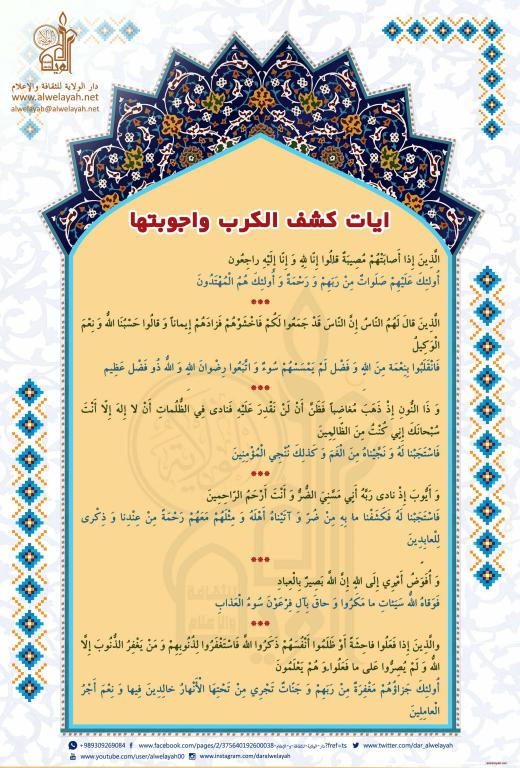 دار الولاية للثقافة والإعلام
www.alwelayah.net
alwelayab@alwelayah.net
ايات كشف الكرب واجوبتها
الَّذِينَ إِذا أَصابَتْهُمْ مُصِيبَةٌ قالُوا إِنَّا لِلَّهِ وَ إِنَّا إِلَيْهِ راجِعُون
أُولئِكَ عَلَيْهِمْ صَلَواتٌ مِنْ رَبِّهِمْ وَ رَحْمَةٌ وَ أُولئِكَ هُمُ الْمُهْتَدُونَ
***
الَّذِينَ قالَ لَهُمُ النَّاسُ إِنَّ النَّاسَ قَدْ جَمَعُوا لَكُمْ فَاخْشَوْهُمْ فَزادَهُمْ إِيماناً وَ قالُوا حَسْبُنَا اللَّهُ وَ نِعْمَ
الْوَكِيلُ
فَانْقَلَبُوا بِنِعْمَة مِنَ اللَّهِ وَ فَضْل لَمْ يَمْسَسْهُمْ سُوءٌ وَ اتَّبَعُوا رِضْوانَ اللَّهِ وَ اللَّهُ ذُو فَضْل عَظِيم
***
وَ ذَا النُّونِ إِذْ ذَهَبَ مُغاضِباً فَظَنَّ أَنْ لَنْ نَقْدِرَ عَلَيْهِ فَنادى فِي الظُّلُماتِ أَنْ لا إِلهَ إِلَّا أَنْتَ
سُبْحانَكَ إِنِّي كُنْتُ مِنَ الظَّالِمِينَ
فَاسْتَجَبْنا لَهُ وَ نَجَّيْناهُ مِنَ الْغَمِّ وَ كَذلِكَ نُنْجِي الْمُؤْمِنِينَ
***
وَ أَيُّوبَ إِذْ نادى رَبَّهُ أَنِّي مَسَّنِيَ الضُّرُّ وَ أَنْتَ أَرْحَمُ الرَّاحِمِينَ
فَاسْتَجَبْنا لَهُ فَكَشَفْنا ما بِهِ مِنْ ضُرّ وَ آتَيْناهُ أَهْلَهُ وَ مِثْلَهُمْ مَعَهُمْ رَحْمَةً مِنْ عِنْدِنا وَ ذِكْرى
لِلْعابِدِينَ
***
وَ أُفَوِّضُ أَمْرِي إِلَى اللَّهِ إِنَّ اللَّهَ بَصِيرٌ بِالْعِبادِ
فَوَقاهُ اللَّهُ سَيِّئاتِ ما مَكَرُوا وَ حاقَ بِآلِ فِرْعَوْنَ سُوءُ الْعَذابِ
***
والَّذِينَ إِذا فَعَلُوا فاحِشَةً أَوْ ظَلَمُوا أَنْفُسَهُمْ ذَكَرُوا اللَّهَ فَاسْتَغْفَرُوا لِذُنُوبِهِمْ وَ مَنْ يَغْفِرُ الذُّنُوبَ إِلَّا
اللَّهُ وَ لَمْ يُصِرُّوا عَلى ما فَعَلُوا وَ هُمْ يَعْلَمُونَ
أُولئِكَ جَزاؤُهُمْ مَغْفِرَةٌ مِنْ رَبِّهِمْ وَ جَنَّاتٌ تَجْرِي مِنْ تَحْتِهَا الْأَنْهارُ خالِدِينَ فِيها وَ نِعْمَ أَجْرُ
الْعامِلِينَ
+989309269084 www.facebook.com/pages/دار-الولاية-للثقافة-و-الإعلام/375640192600038?fref=ts www.twitter.com/dar_alwelayah
www.youtube.com/user/alwelayah00 www.instagram.com/daralwelayah
alwelayah.net